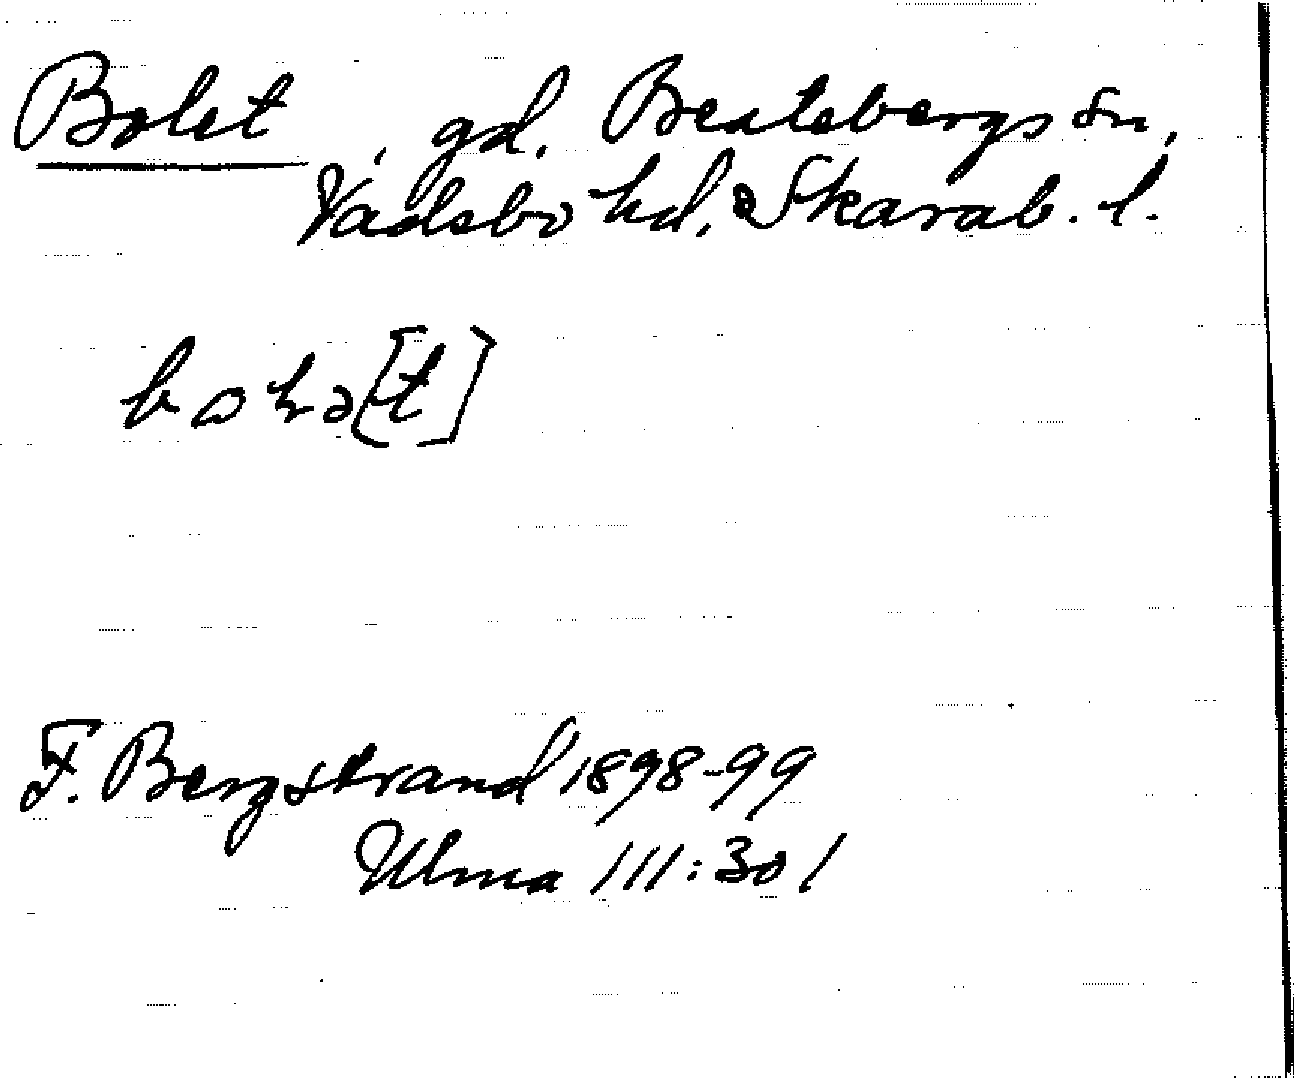 Bolet, gd. Beatebergs sn,
Vadsbo hd, Skarab. l.
F. Bergstrand 1898-99
Ulma 111:301